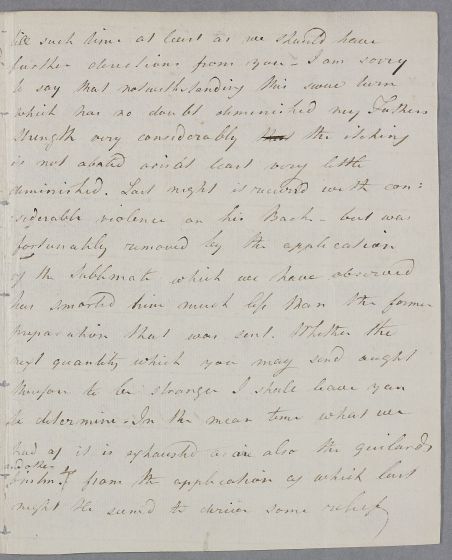 till such time at least as we should have
further directions from you - I am sorry
to say that notwithstanding this sweet turn
which has no doubt diminished my Fathers
strength very considerably the itching
is not abated or is at least very little
diminished. Last night it recurred with con:
:siderable violence on his Back - but was
fortunately removed by the application
of the Sublimate which we have observed
has smarted him much less than the former
preparation that was sent. Whether the
next quantity which you may send ought
therefore to be stronger I shall leave you
to determine. In the mean time what we
had of it is exhausted as are also the
and other
from the application of which last
night He seem'd to derive some relief